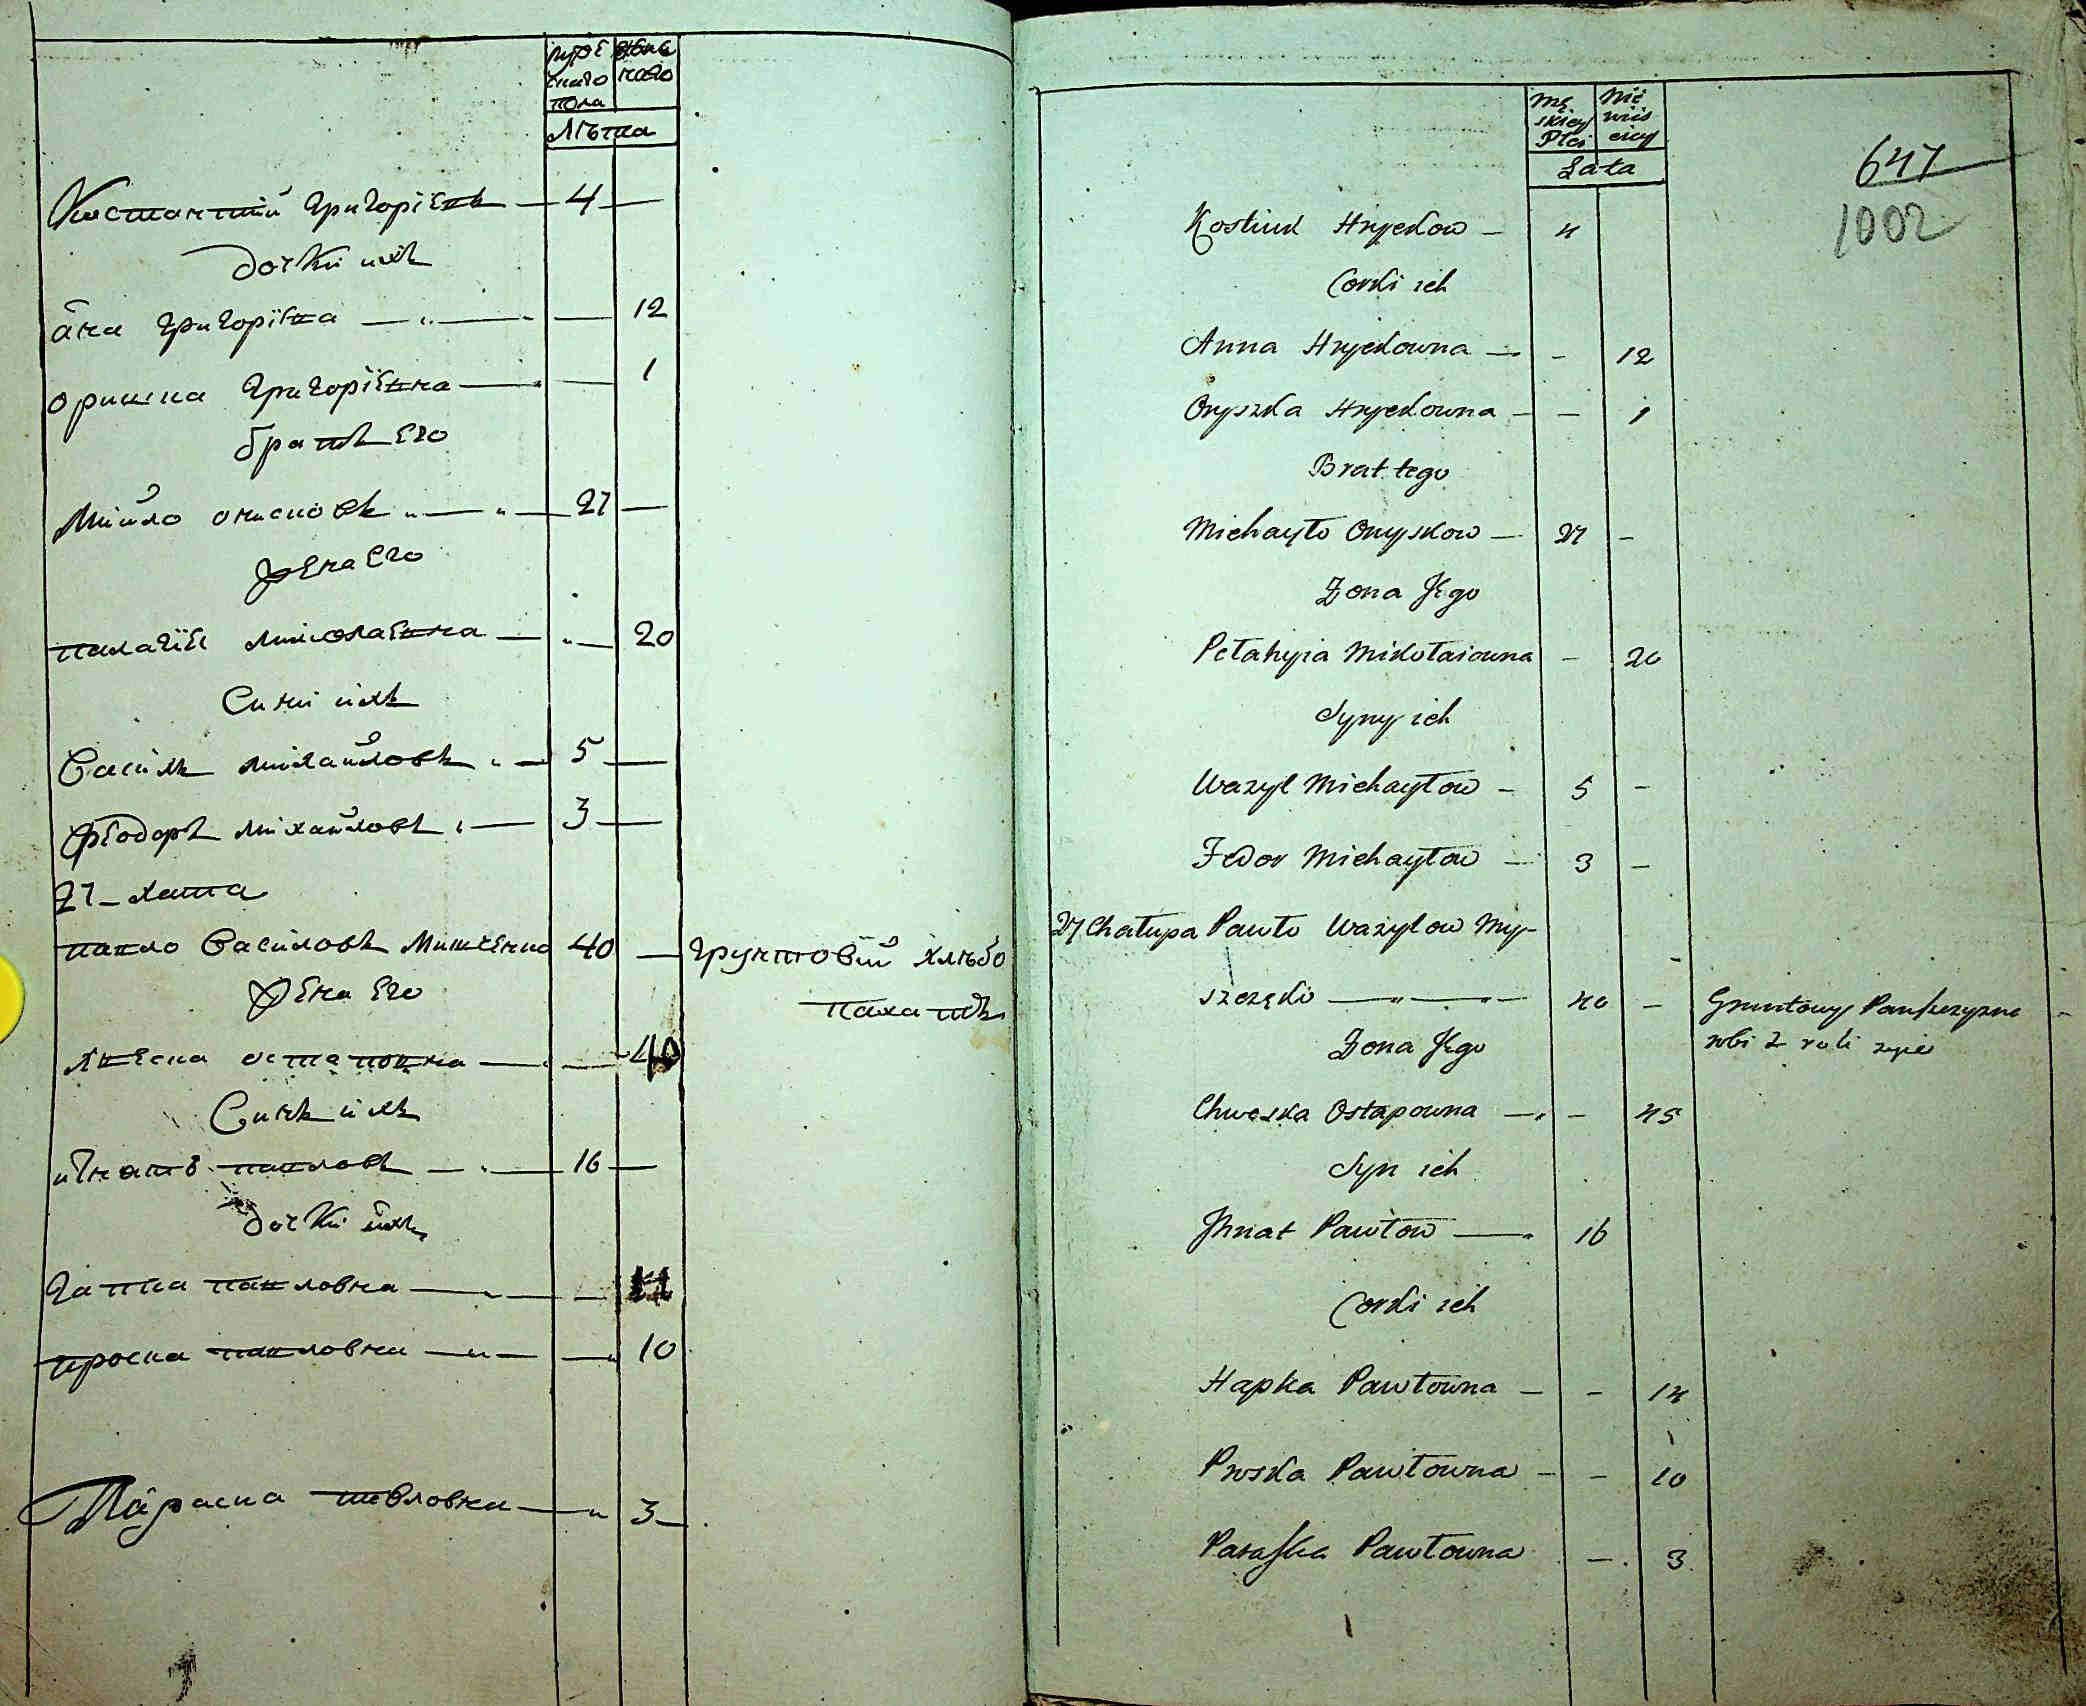 мужескаго пола
женскаго
Лѣта
Костантий Григоріевъ 4 —
дочки ихъ
Анa Григоріевна — — 12
Оришка Григоріевна — — 1
братъ его
Михайло Онисковъ — 27 —
жена его
Палагія Миколаевна — — 20
Сини ихъ
Василь Михайловъ — 5 —
Фіодоръ Михайловъ — 3 —
27 – хата
Павло Василовъ Мишченко 40 — Грунтовий хлѣбо
жена его
пахатъ
Хвеска Остаповна — — 40
Синъ ихъ
Игнатъ Павловъ — 16 —
дочки ихъ
Гапка Павловна — —
Проска Павловна — — 10
Параска Павловна — 3
męskiey Płci
niewisciey
Lata
647
1002
Kostiuk Hryckow – 4
Corki ich
Anna Hryckowna – – 12
Oryszka Hryckowna – – 1
Brat tego
Michayło Onyskow – 27 –
Zona Jego
Pełahyia Mikołaiowna – 20
Syny ich
Wazyl Michayłow – 5 –
Fedor Michayłow – 3 –
27 Chałupa Pawło Wazylow My-
szczęko — 40 – Gruntowy Panszczyzne
robi z roli zyie
Zona Jego
Chweska Ostapowna – – 45
Syn ich
Jhnat Pawłow — 16
Corki ich
Hapka Pawłowna – – 14
Proska Pawłowna – – 10
Paraska Pawłowna – 3